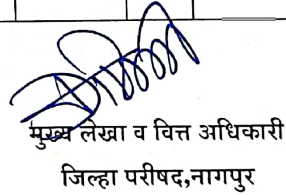 मुख्य लेखा व वित्त अधिकारी
जिल्हा परीषद,नागपुर